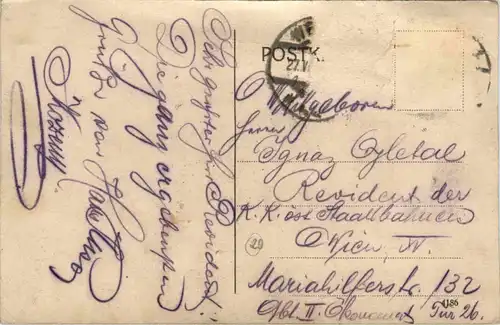 Sehr geehrter Herr Revident!
Die ganz ergebensten
Grüße von
POSTK
WIE
27.V
Wohlgeboren
Herrn
Ignaz Ozletal
Revident der
K. K. öst. Staatsbahnen
Wien, IV.
Mariahilferstr. 132
Abt. II. Ökonomat Tür 26.
20
1186